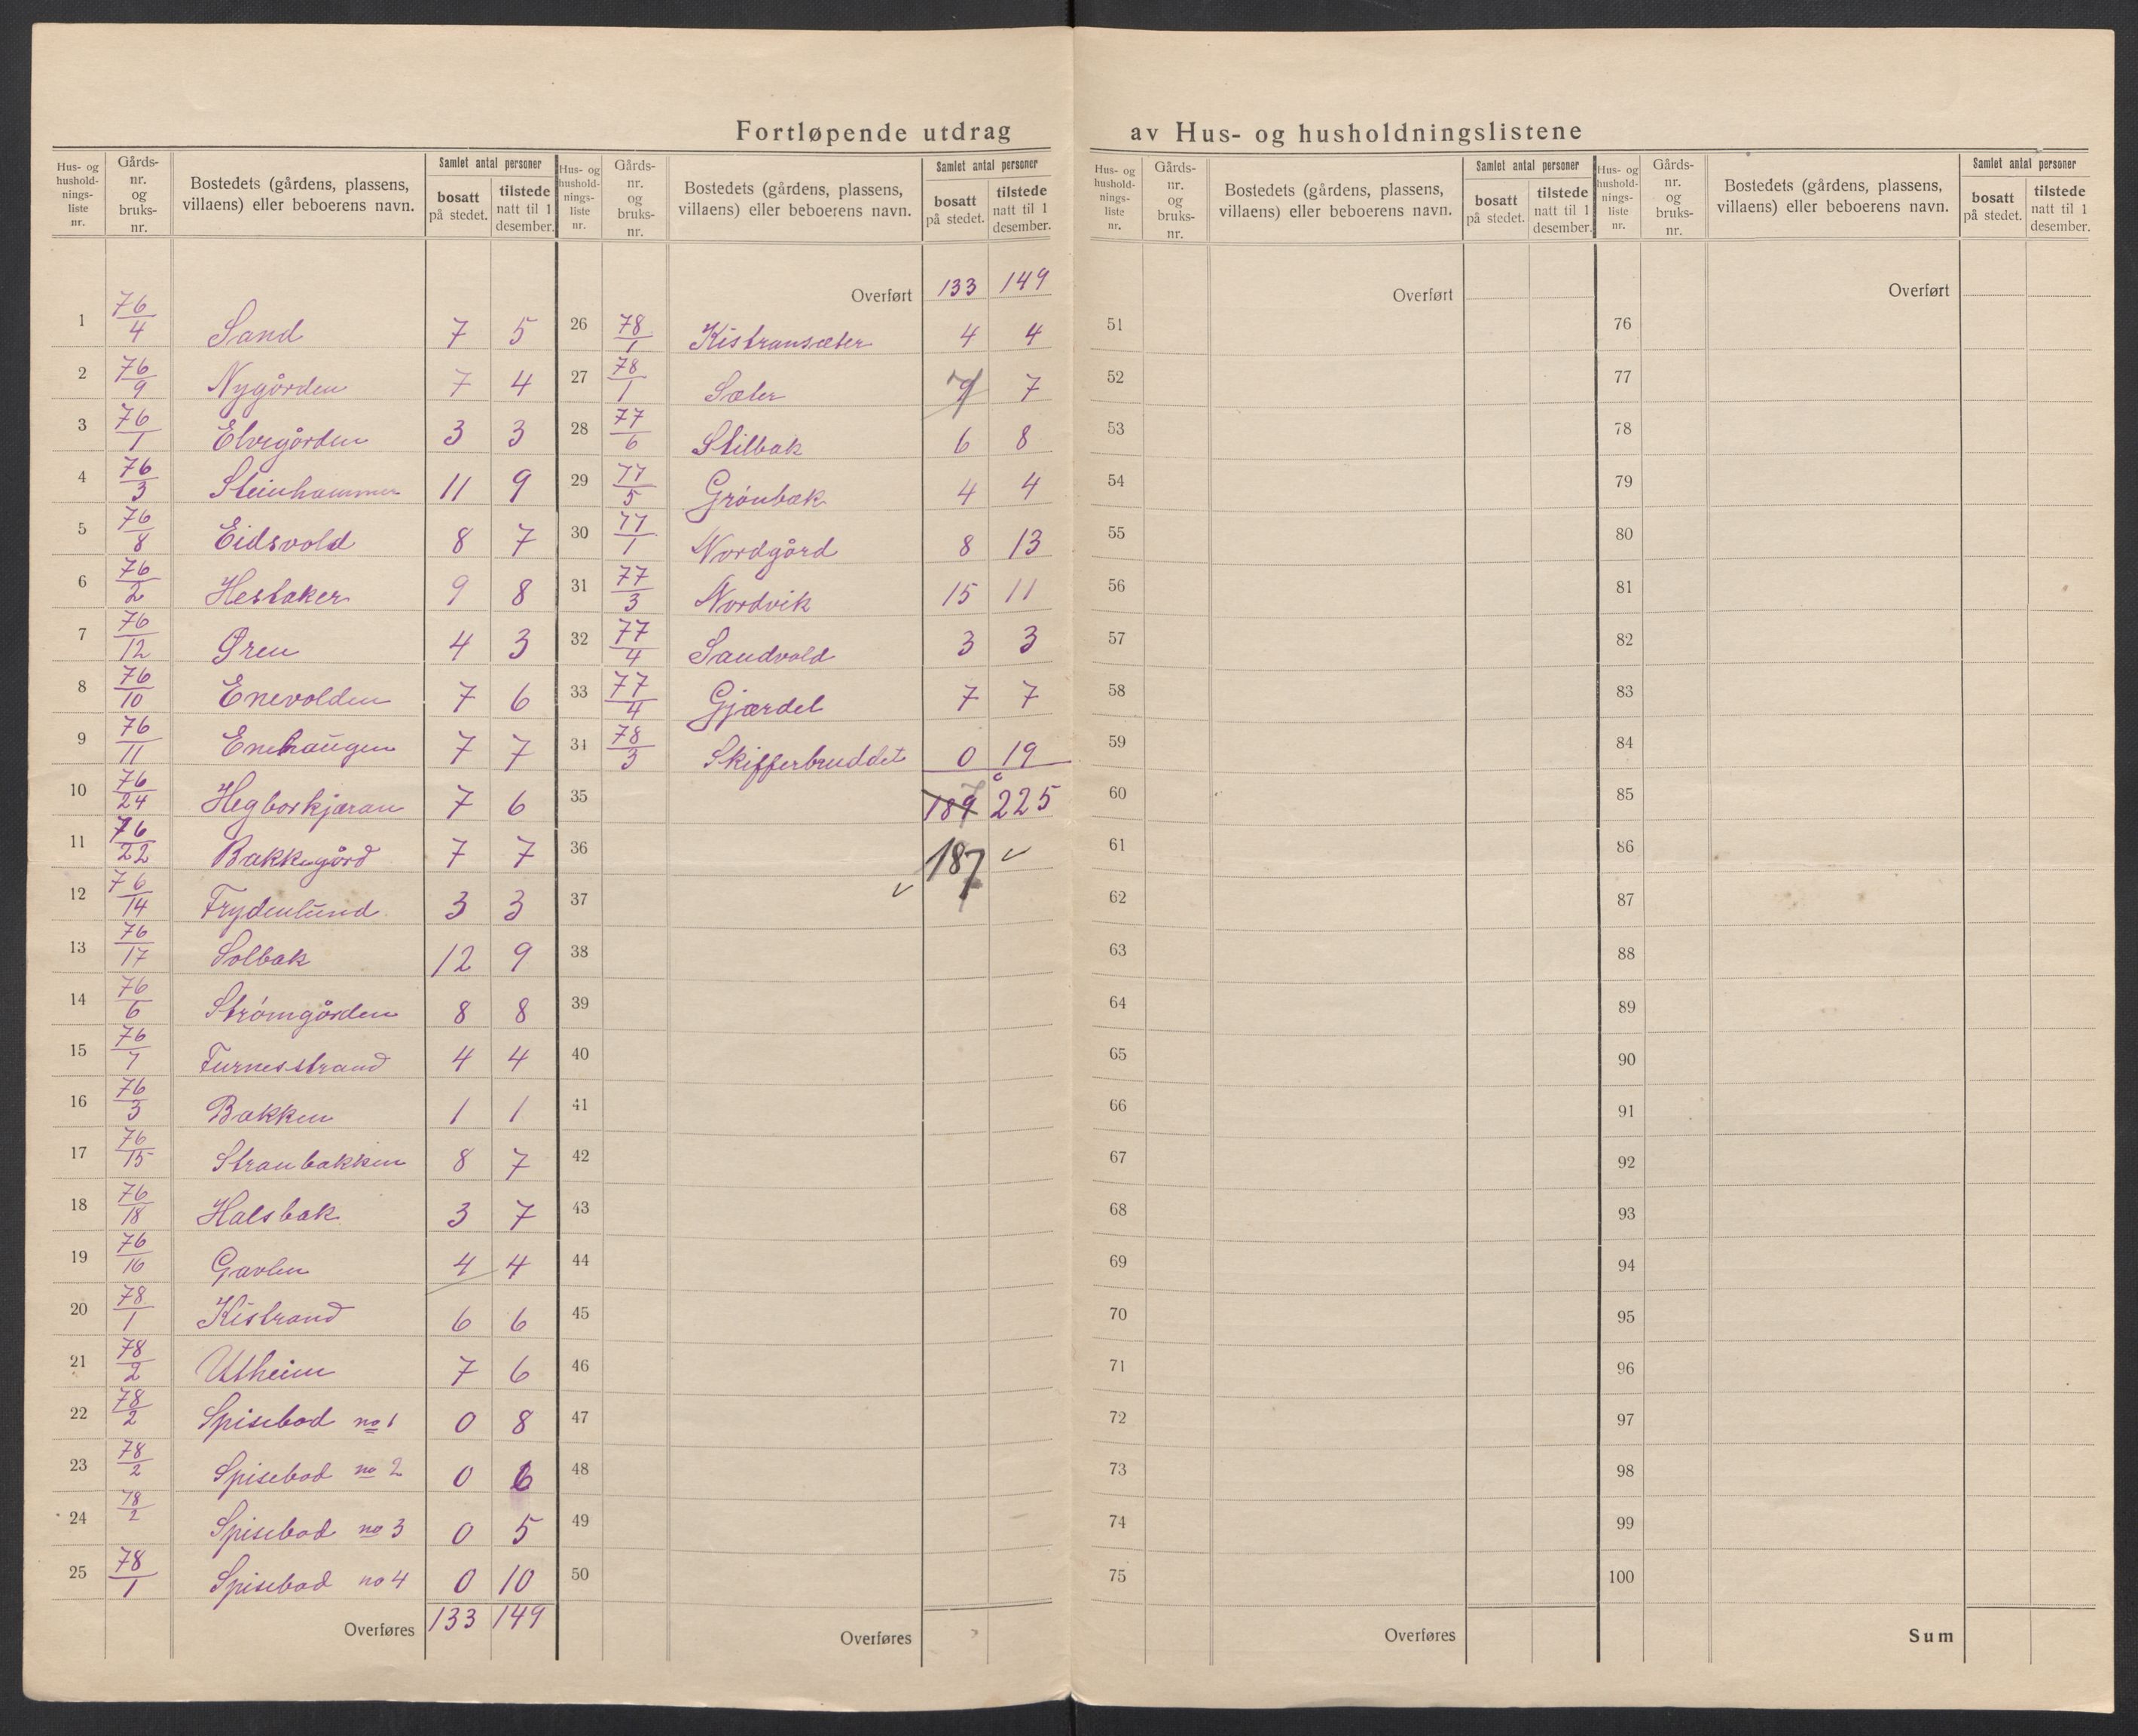 Fortløpende utdrag av Hus- og husholdningslistene
Hus- og hushold-nings-liste nr. Gårds-nr. og bruks-nr. Bostedets (gårdens, plassens, villaens) eller beboerens navn. Samlet antal personer bosatt på stedet. tilstede natt til 1 desember.
1 76/4 Sand 7 5
2 76/9 Nygården 7 4
3 76/1 Elvegården 3 3
4 76/3 Steinhammer 11 9
5 76/8 Eidsvold 8 7
6 76/2 Hestaker 9 8
7 76/12 Øren 4 3
8 76/10 Enevolden 7 6
9 76/11 Enehaugen 7 7
10 76/24 Hegborskjæran 7 6
11 76/22 Bakkegård 7 7
12 76/14 Frydenlund 3 3
13 76/17 Solbak 12 9
14 76/6 Strømgården 8 8
15 76/7 Furnesstrand 4 4
16 76/3 Bakken 1 1
17 76/15 Stranbakken 8 7
18 76/18 Halsbak 3 7
19 76/16 Gavlen 4 4
20 78/1 Kistrand 6 6
21 78/2 Utheim 7 6
22 78/2 Spisebod no 1 0 8
23 78/2 Spisebod no 2 0 6
24 78/2 Spisebod no 3 0 5
25 78/1 Spisebod no 4 0 10
Overføres 133 149
Hus- og hushold-nings-liste nr. Gårds-nr. og bruks-nr. Bostedets (gårdens, plassens, villaens) eller beboerens navn. Samlet antal personer bosatt på stedet. tilstede natt til 1 desember.
Overført 133 149
26 78/1 Kistransæter 4 4
27 78/1 Sæter 7
28 77/6 Stilbak 6 8
29 77/5 Grønbæk 4 4
30 77/1 Nordgård 8 13
31 77/3 Nordvik 15 11
32 77/4 Sandvold 3 3
33 77/4 Gjærdet 7 7
34 78/3 Skifferbruddet 0 19
35 189 225
36 187
37
38
39
40
41
42
43
44
45
46
47
48
49
50
Overføres
Hus- og hushold-nings-liste nr. Gårds-nr. og bruks-nr. Bostedets (gårdens, plassens, villaens) eller beboerens navn. Samlet antal personer bosatt på stedet. tilstede natt til 1 desember.
Overført
51
52
53
54
55
56
57
58
59
60
61
62
63
64
65
66
67
68
69
70
71
72
73
74
75
Overføres
Hus- og hushold-nings-liste nr. Gårds-nr. og bruks-nr. Bostedets (gårdens, plassens, villaens) eller beboerens navn. Samlet antal personer bosatt på stedet. tilstede natt til 1 desember.
Overført
76
77
78
79
80
81
82
83
84
85
86
87
88
89
90
91
92
93
94
95
96
97
98
99
100
Sum